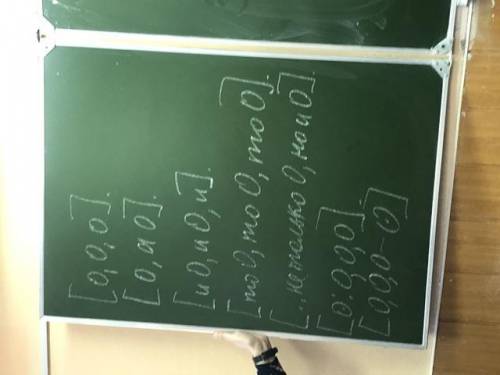 [O, O, O].
[O, а O].
[и O, и O, и].
[то O, то O, то O].
[..не только O, но и O].
[O: O, O, O].
[O, O, O – O]